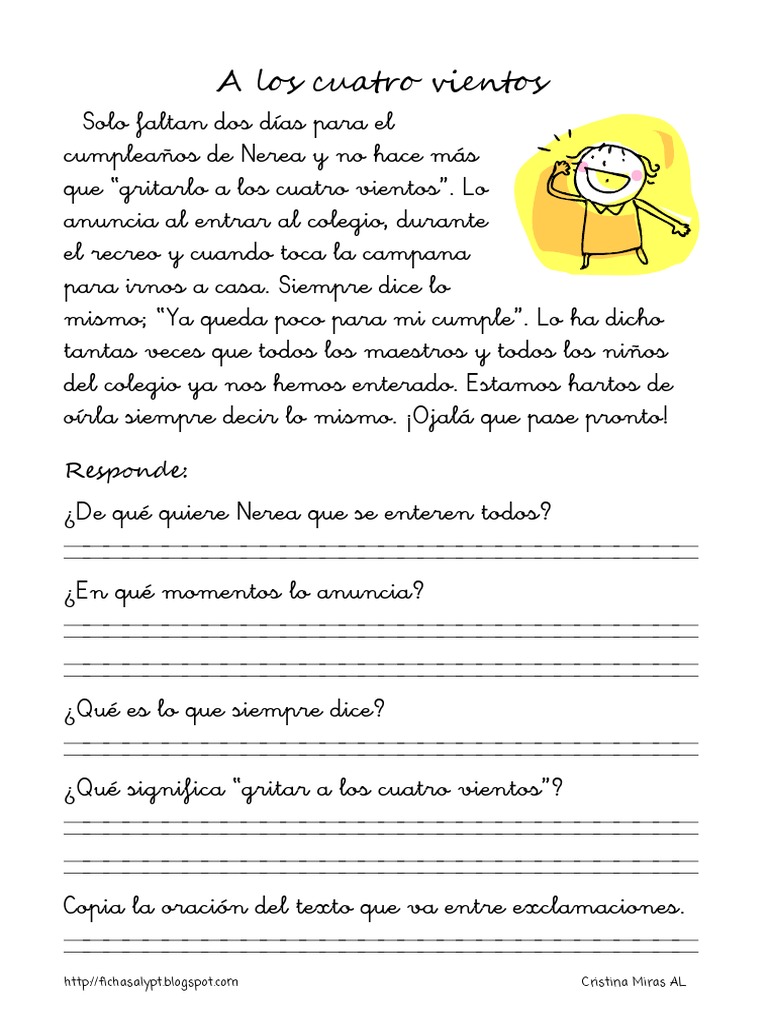 A los cuatro vientos
Solo faltan dos días para el
cumpleaños de Nerea y no hace más
que "gritarlo a los cuatro vientos". Lo
anuncia al entrar al colegio, durante
el recreo y cuando toca la campana
para irnos a casa. Siempre dice lo
mismo; "Ya queda poco para mi cumple". Lo ha dicho
tantas veces que todos los maestros y todos los niños
del colegio ya nos hemos enterado. Estamos hartos de
oírla siempre decir lo mismo. ¡Ojalá que pase pronto!
Responde:
¿De qué quiere Nerea que se enteren todos?
¿En qué momentos lo anuncia?
¿Qué es lo que siempre dice?
¿Qué significa "gritar a los cuatro vientos"?
Copia la oración del texto que va entre exclamaciones.
http://fichasalypt.blogspot.com
Cristina Miras AL